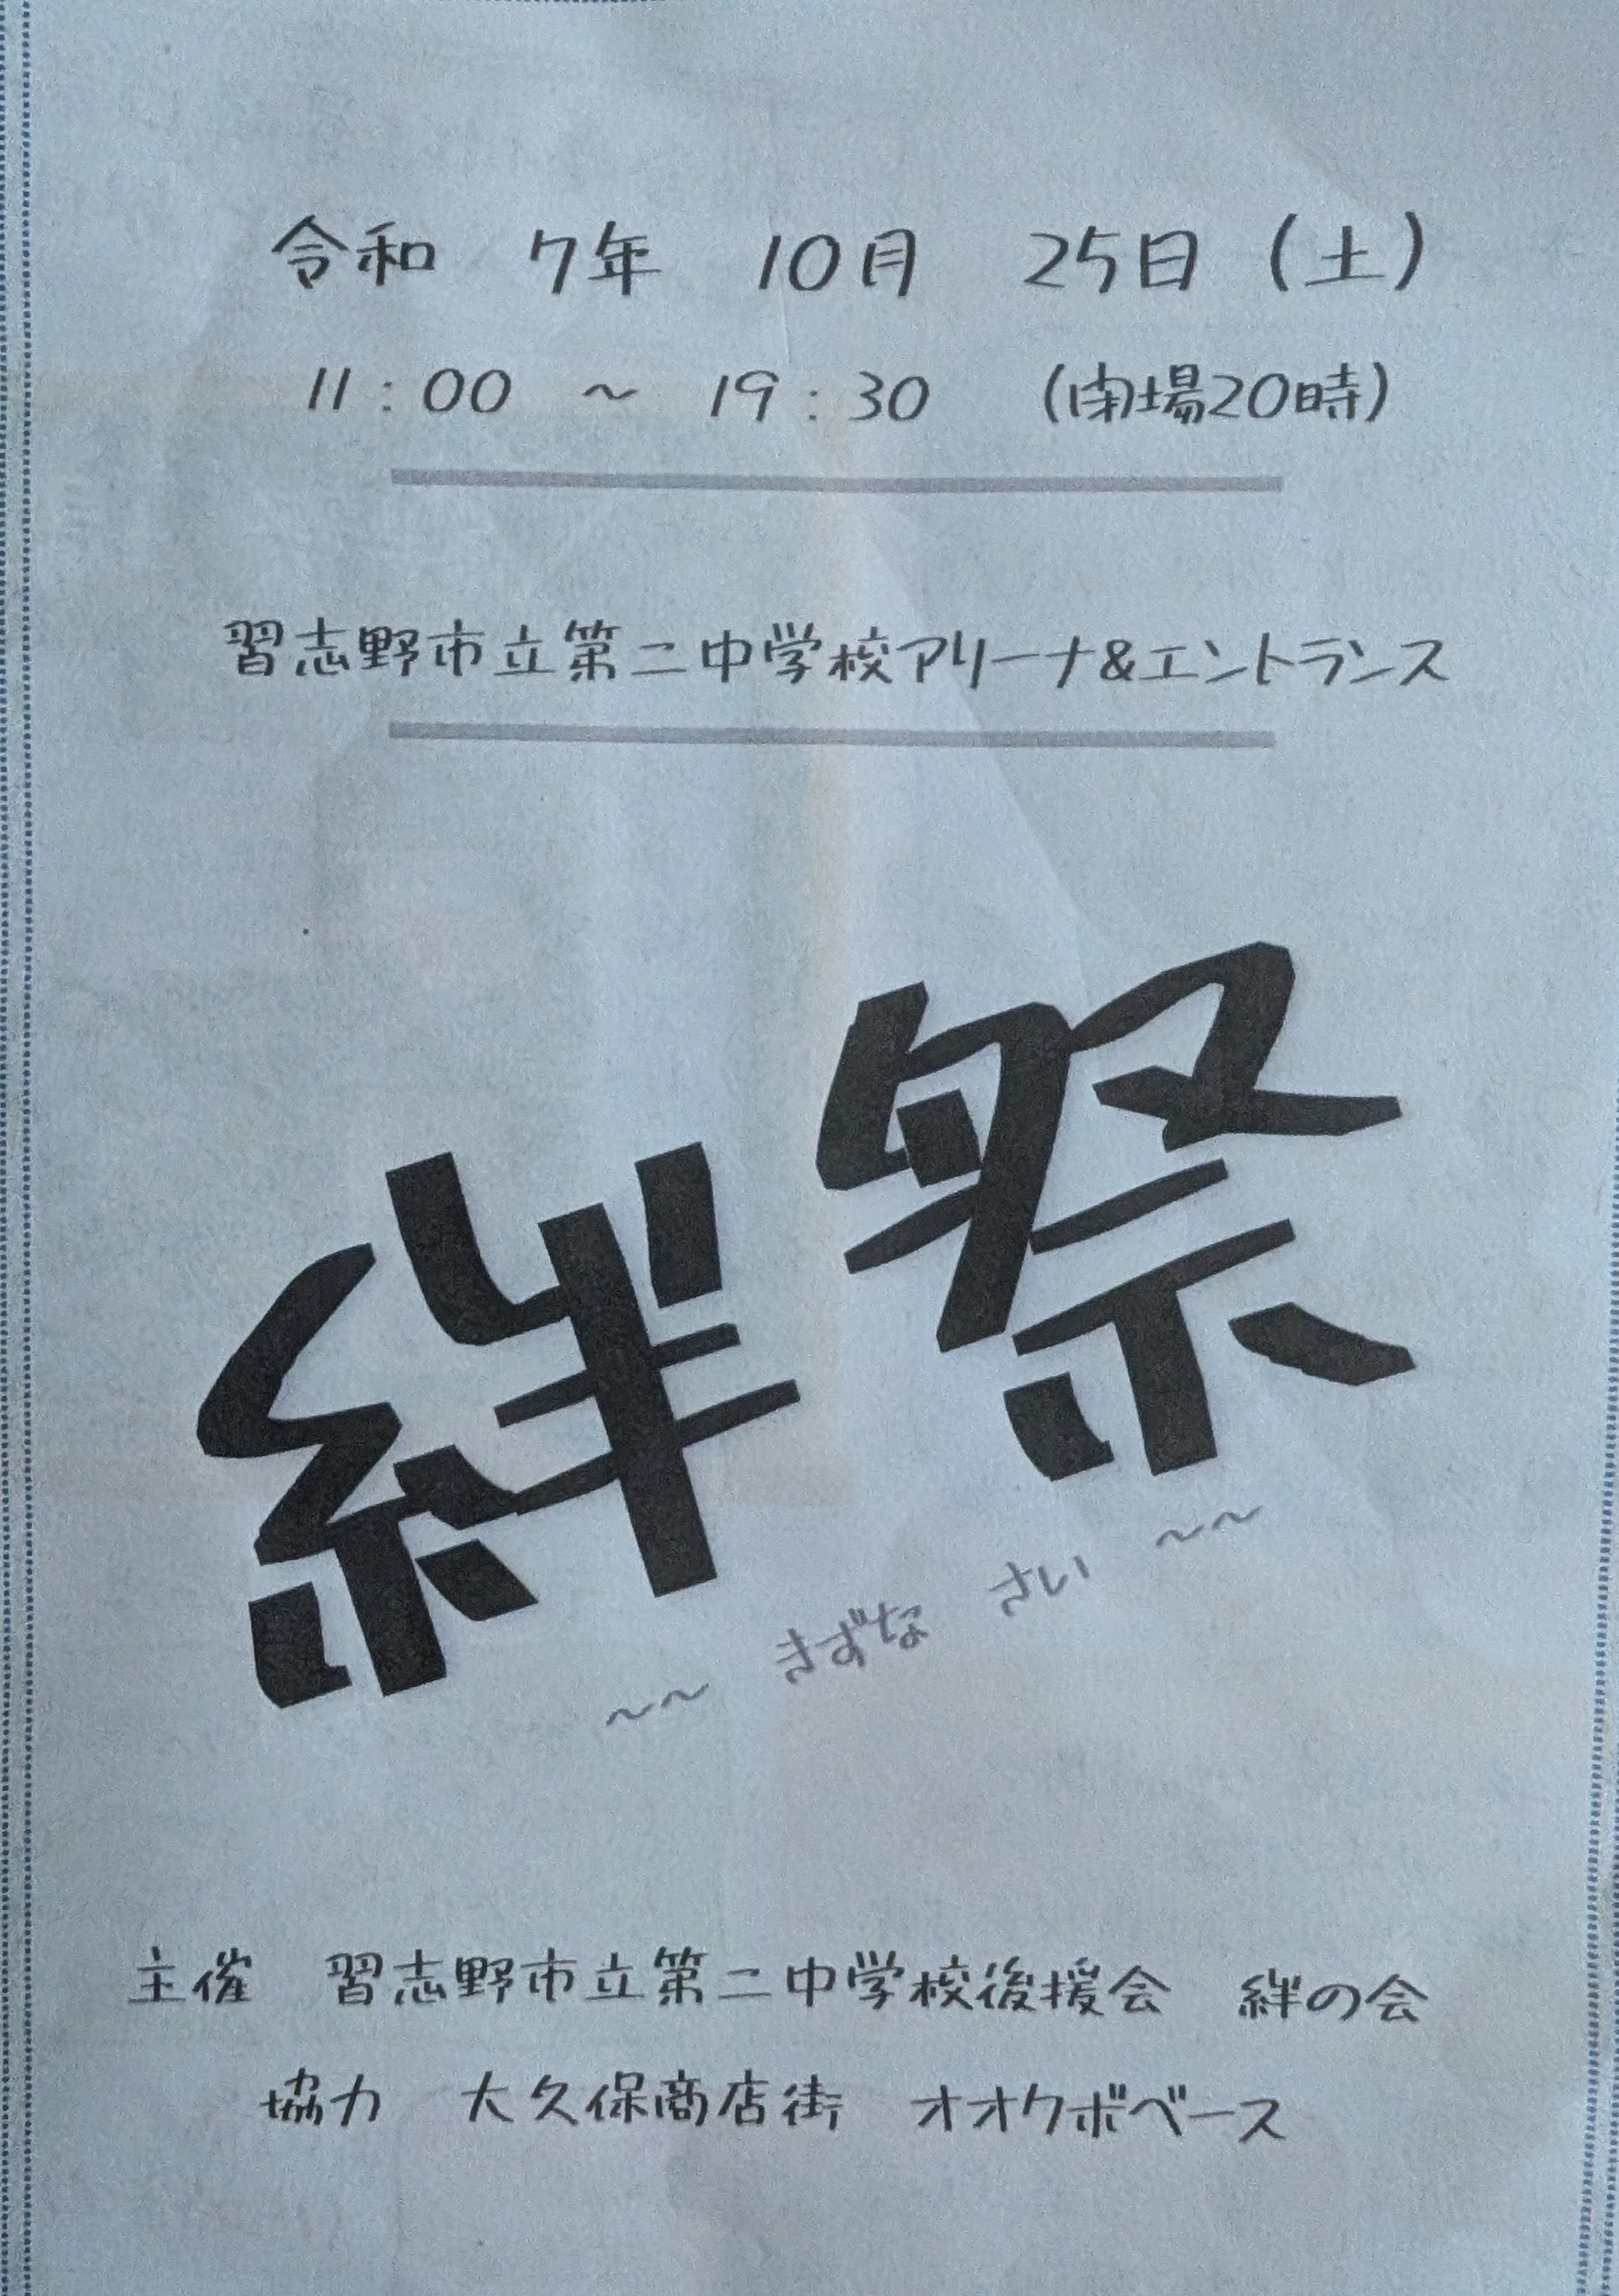 令和 7年 10月 25日（土）
11:00 ～ 19:30 （閉場20時）
習志野市立第二中学校アリーナ&エントランス
絆祭
～～ きずな さい ～～
主催 習志野市立第二中学校後援会 絆の会
協力 大久保商店街 オオクボベース